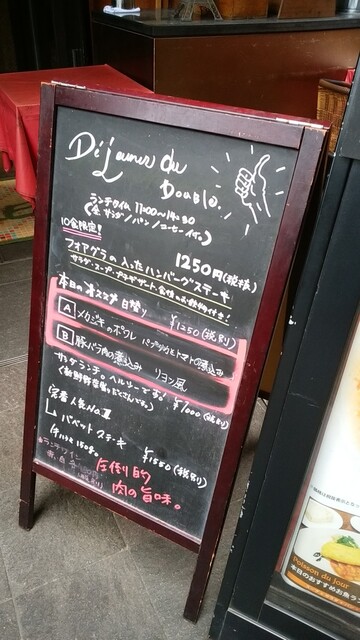 Déjeuner du
Double.
ランチタイム 11:00〜14:30
(全 サラダ/パン/コーヒー 付。)
10食限定!
1250円(税抜)
フォアグラの入ったハンバーグステーキ
サラダ・スープ・プチデザート・食後のお飲物付き!
本日のオススメ 日替り
A メカジキのポワレ パプリカとトマトの煮込み
¥1250(税別)
B 豚バラ肉の煮込み リヨン風
サラダランチ。ヘルシーです!
¥1000(税別)
(新鮮野菜たくさんです。)
定番人気No.1
バベットステキ
150g
¥1550(税別)
圧倒的
肉の旨味。
ランチワイン
Poisson du jour
本日のおすすめお魚ラ